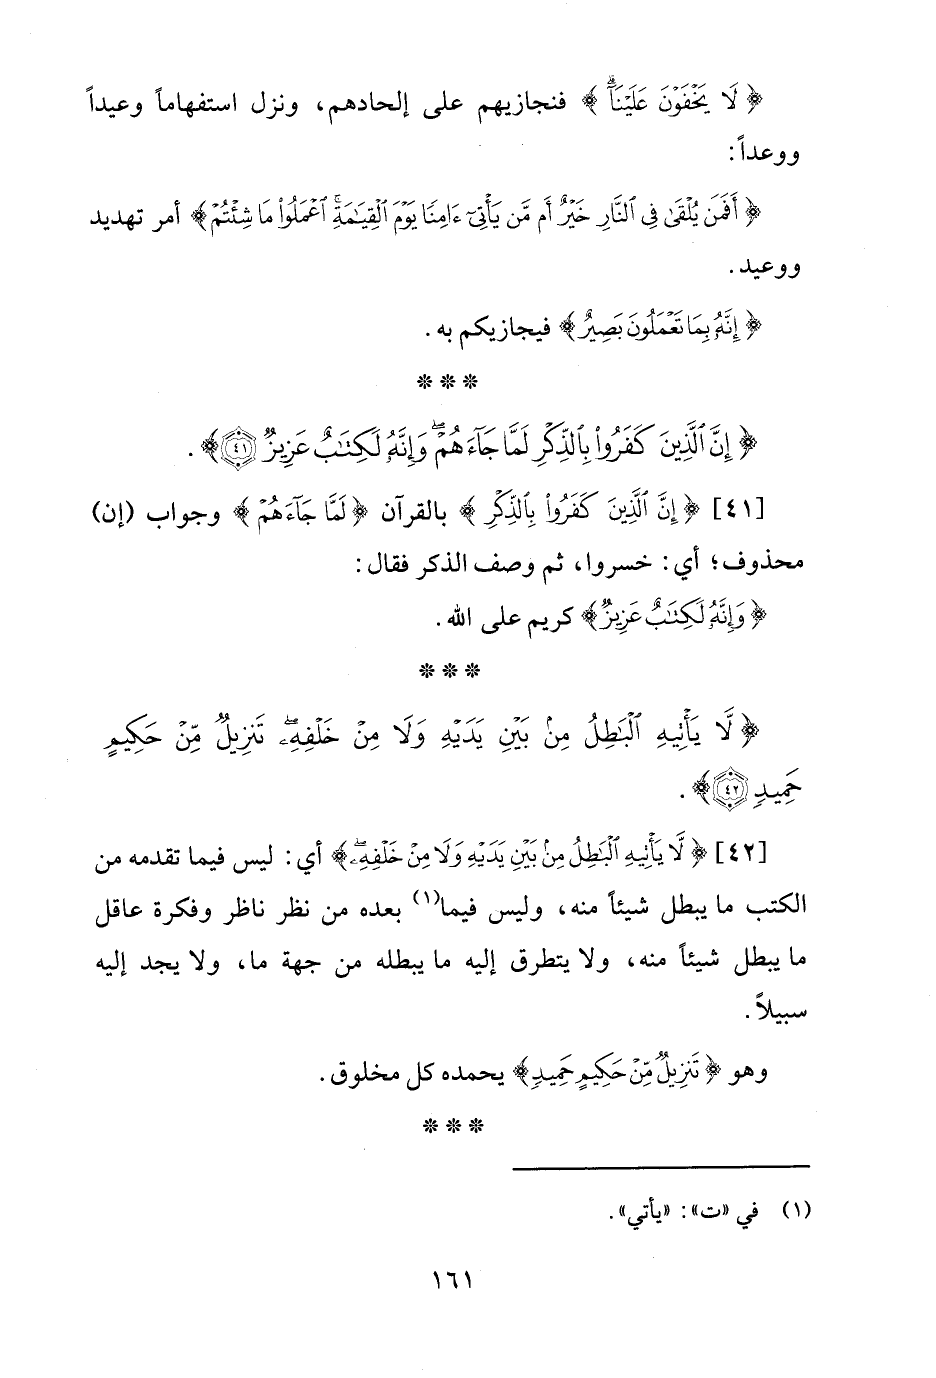 ﴿ لَا يَخْفَوْنَ عَلَيْنَآۗ ﴾ فنجازيهم على إلحادهم، ونزل استفهاماً وعيداً
ووعداً:
﴿ أَفَمَن يُلْقَىٰ فِى ٱلنَّارِ خَيْرٌ أَم مَّن يَأْتِىٓ ءَامِنًا يَوْمَ ٱلْقِيَٰمَةِۚ ٱعْمَلُوا۟ مَا شِئْتُمْ﴾ أمر تهديد
ووعيد.
﴿ إِنَّهُۥ بِمَا تَعْمَلُونَ بَصِيرٌ﴾ فيجازيكم به.
***
﴿ إِنَّ ٱلَّذِينَ كَفَرُوا۟ بِٱلذِّكْرِ لَمَّا جَآءَهُمْۖ وَإِنَّهُۥ لَكِتَٰبٌ عَزِيزٌ ٤١﴾.
[٤١] ﴿ إِنَّ ٱلَّذِينَ كَفَرُوا۟ بِٱلذِّكْرِ ﴾ بالقرآن ﴿ لَمَّا جَآءَهُمْ ﴾ وجواب (إن)
محذوف؛ أي: خسروا، ثم وصف الذكر فقال:
﴿ وَإِنَّهُۥ لَكِتَٰبٌ عَزِيزٌ﴾ كريم على الله.
***
﴿ لَّا يَأْتِيهِ ٱلْبَٰطِلُ مِنۢ بَيْنِ يَدَيْهِ وَلَا مِنْ خَلْفِهِۦۖ تَنزِيلٌ مِّنْ حَكِيمٍ
حَمِيدٍ ٤٢﴾.
[٤٢] ﴿ لَّا يَأْتِيهِ ٱلْبَٰطِلُ مِنۢ بَيْنِ يَدَيْهِ وَلَا مِنْ خَلْفِهِۦۖ﴾ أي: ليس فيما تقدمه من
الكتب ما يبطل شيئاً منه، وليس فيما(١) بعده من نظر ناظر وفكرة عاقل
ما يبطل شيئاً منه، ولا يتطرق إليه ما يبطله من جهة ما، ولا يجد إليه
سبيلاً.
وهو ﴿ تَنزِيلٌ مِّنْ حَكِيمٍ حَمِيدٍ﴾ يحمده كل مخلوق.
***
(١) في «ت»: «يأتي».
١٦١